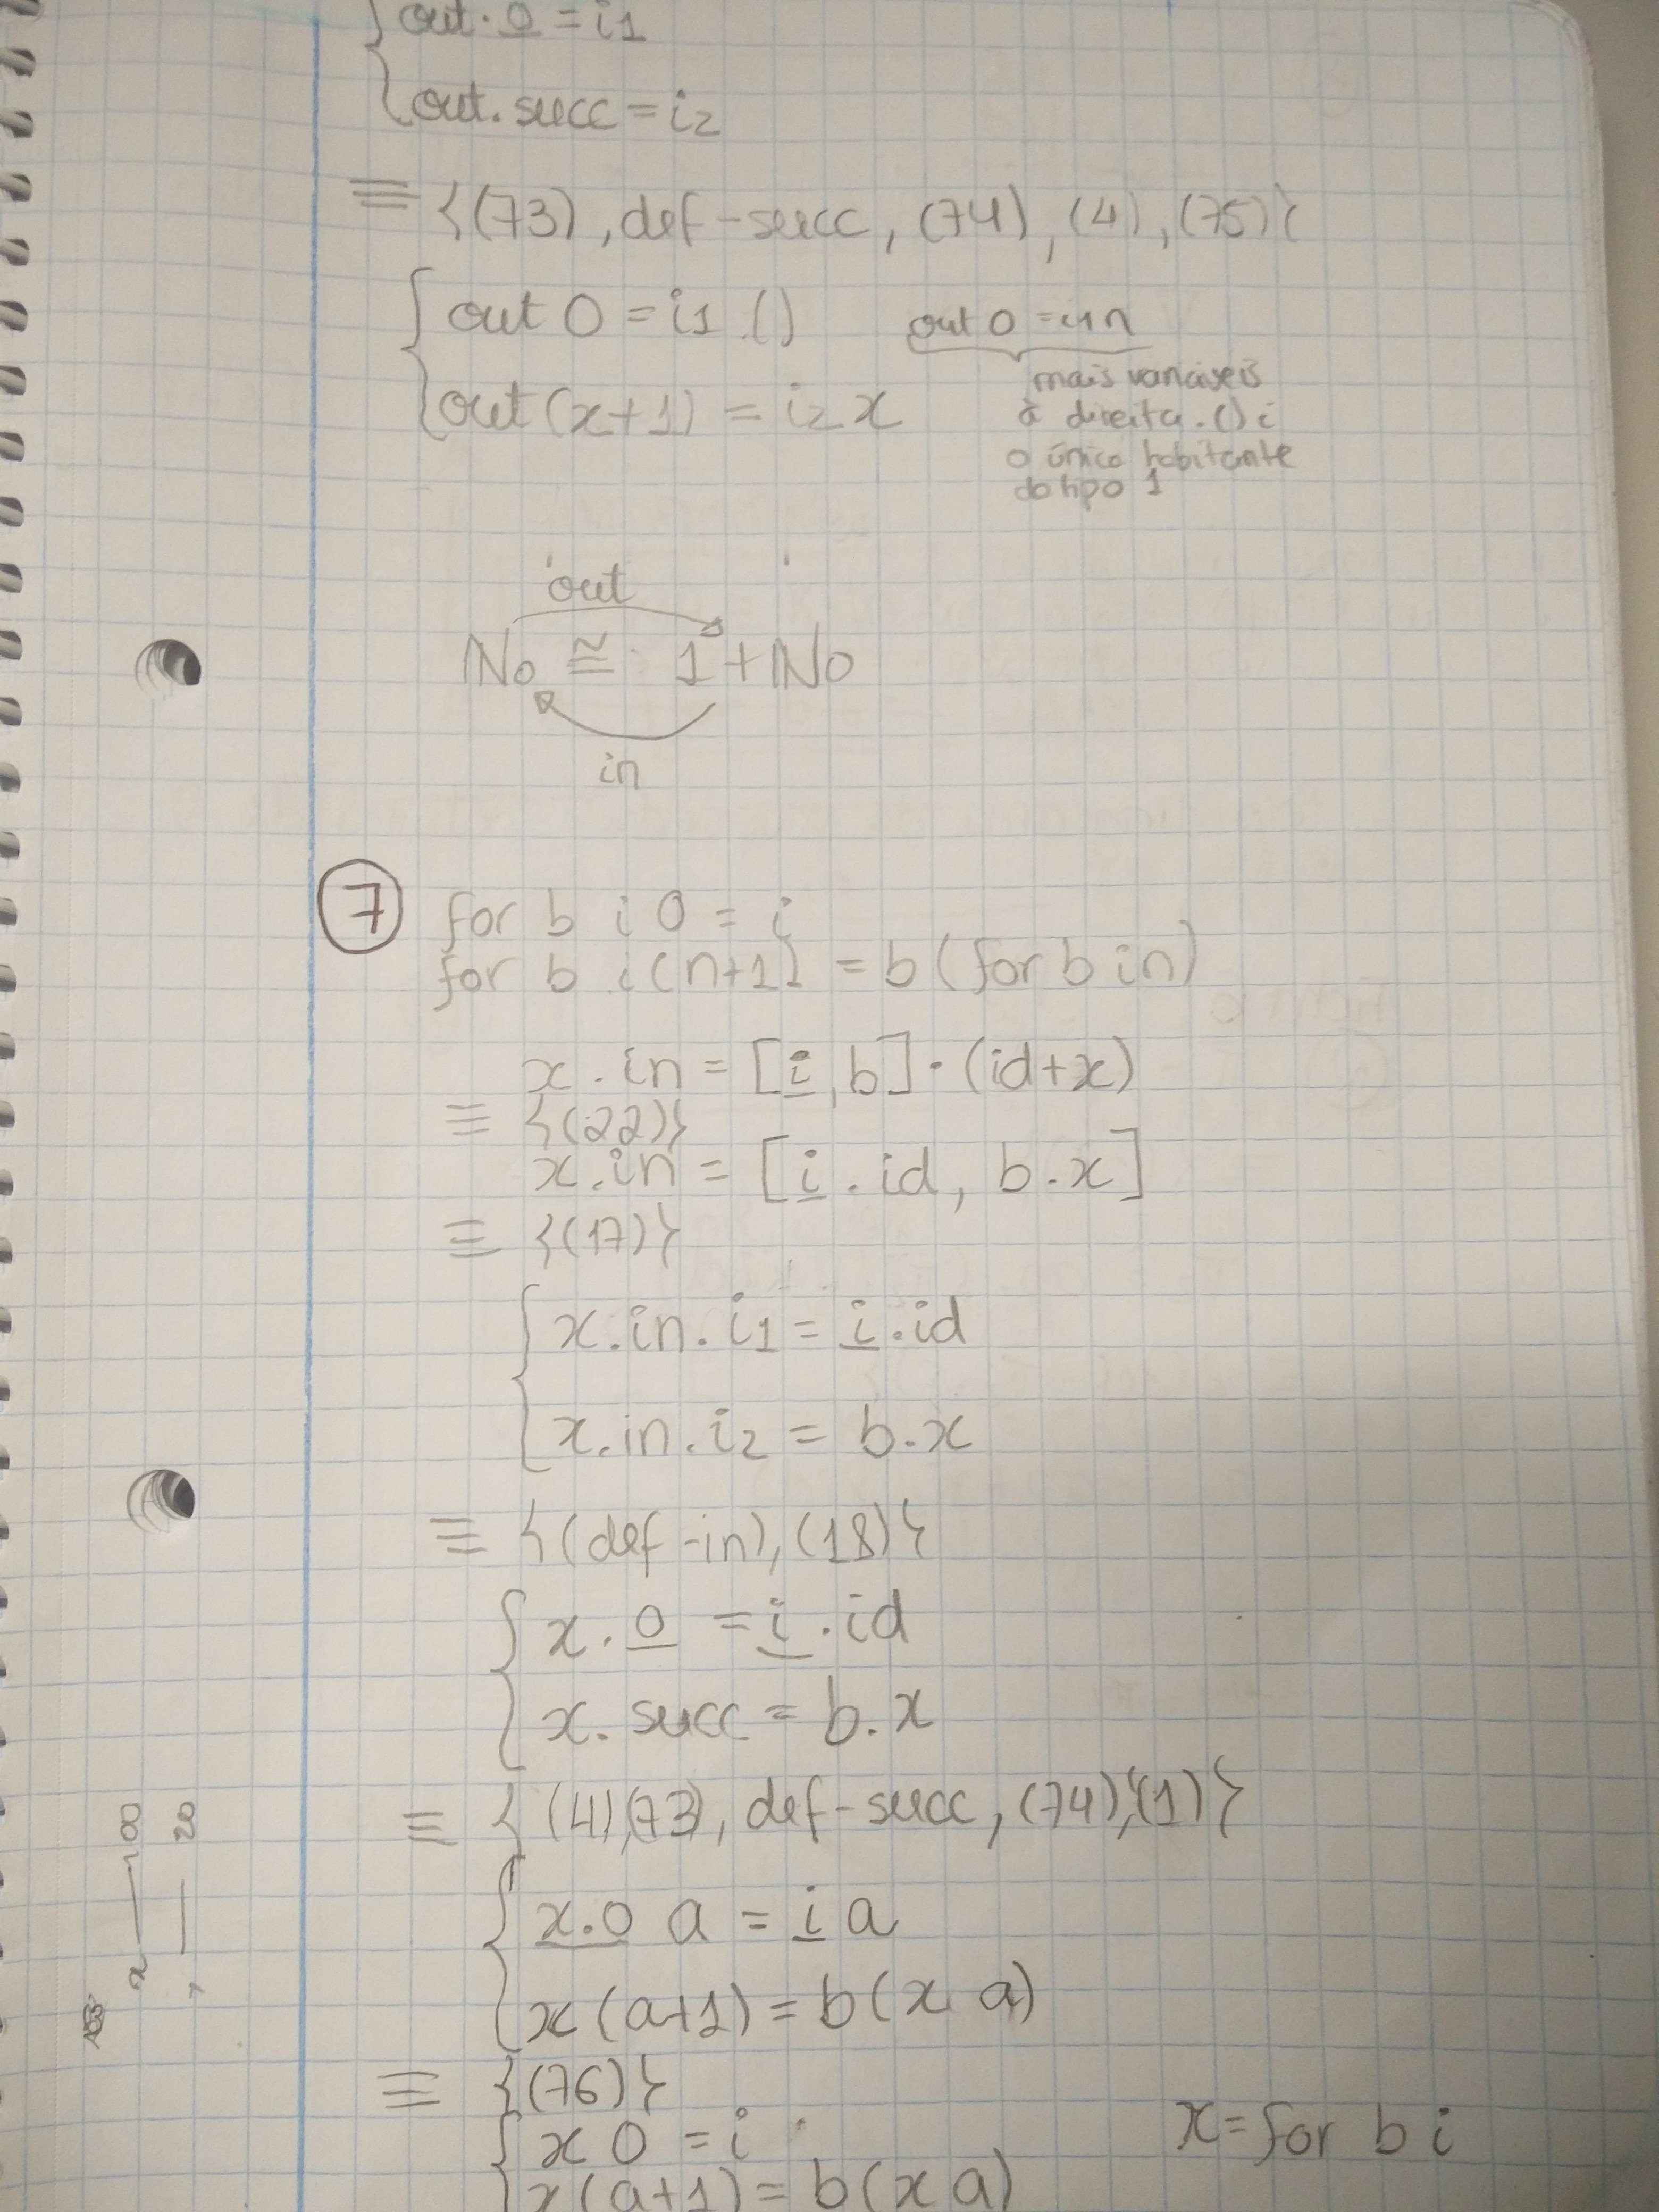 out · 0 = i1
out. succ = i2
≡ {(73), def-succ, (74), (4), (75)}
out 0 = i1 ()
out (x+1) = i2 x
out 0 =
mais variáveis
à direita. () é
o único habitante
do tipo 1
out
N0 ≅ 1 + N0
in
7
for b i 0 = i
for b i (n+1) = b (for b i n)
x . in = [i, b] · (id + x)
≡ {(22)}
x . in = [i . id, b . x]
≡ {(17)}
x . in . i1 = i . id
x . in . i2 = b . x
≡ {(def-in), (18)}
x . 0 = i . id
x . succ = b . x
≡ {(4), (73), def-succ, (74), (1)}
x . 0 a = i a
x (a+1) = b (x a)
≡ {(76)}
x 0 = i
x (a+1) = b (x a)
x = for b i
x — 100
— 20